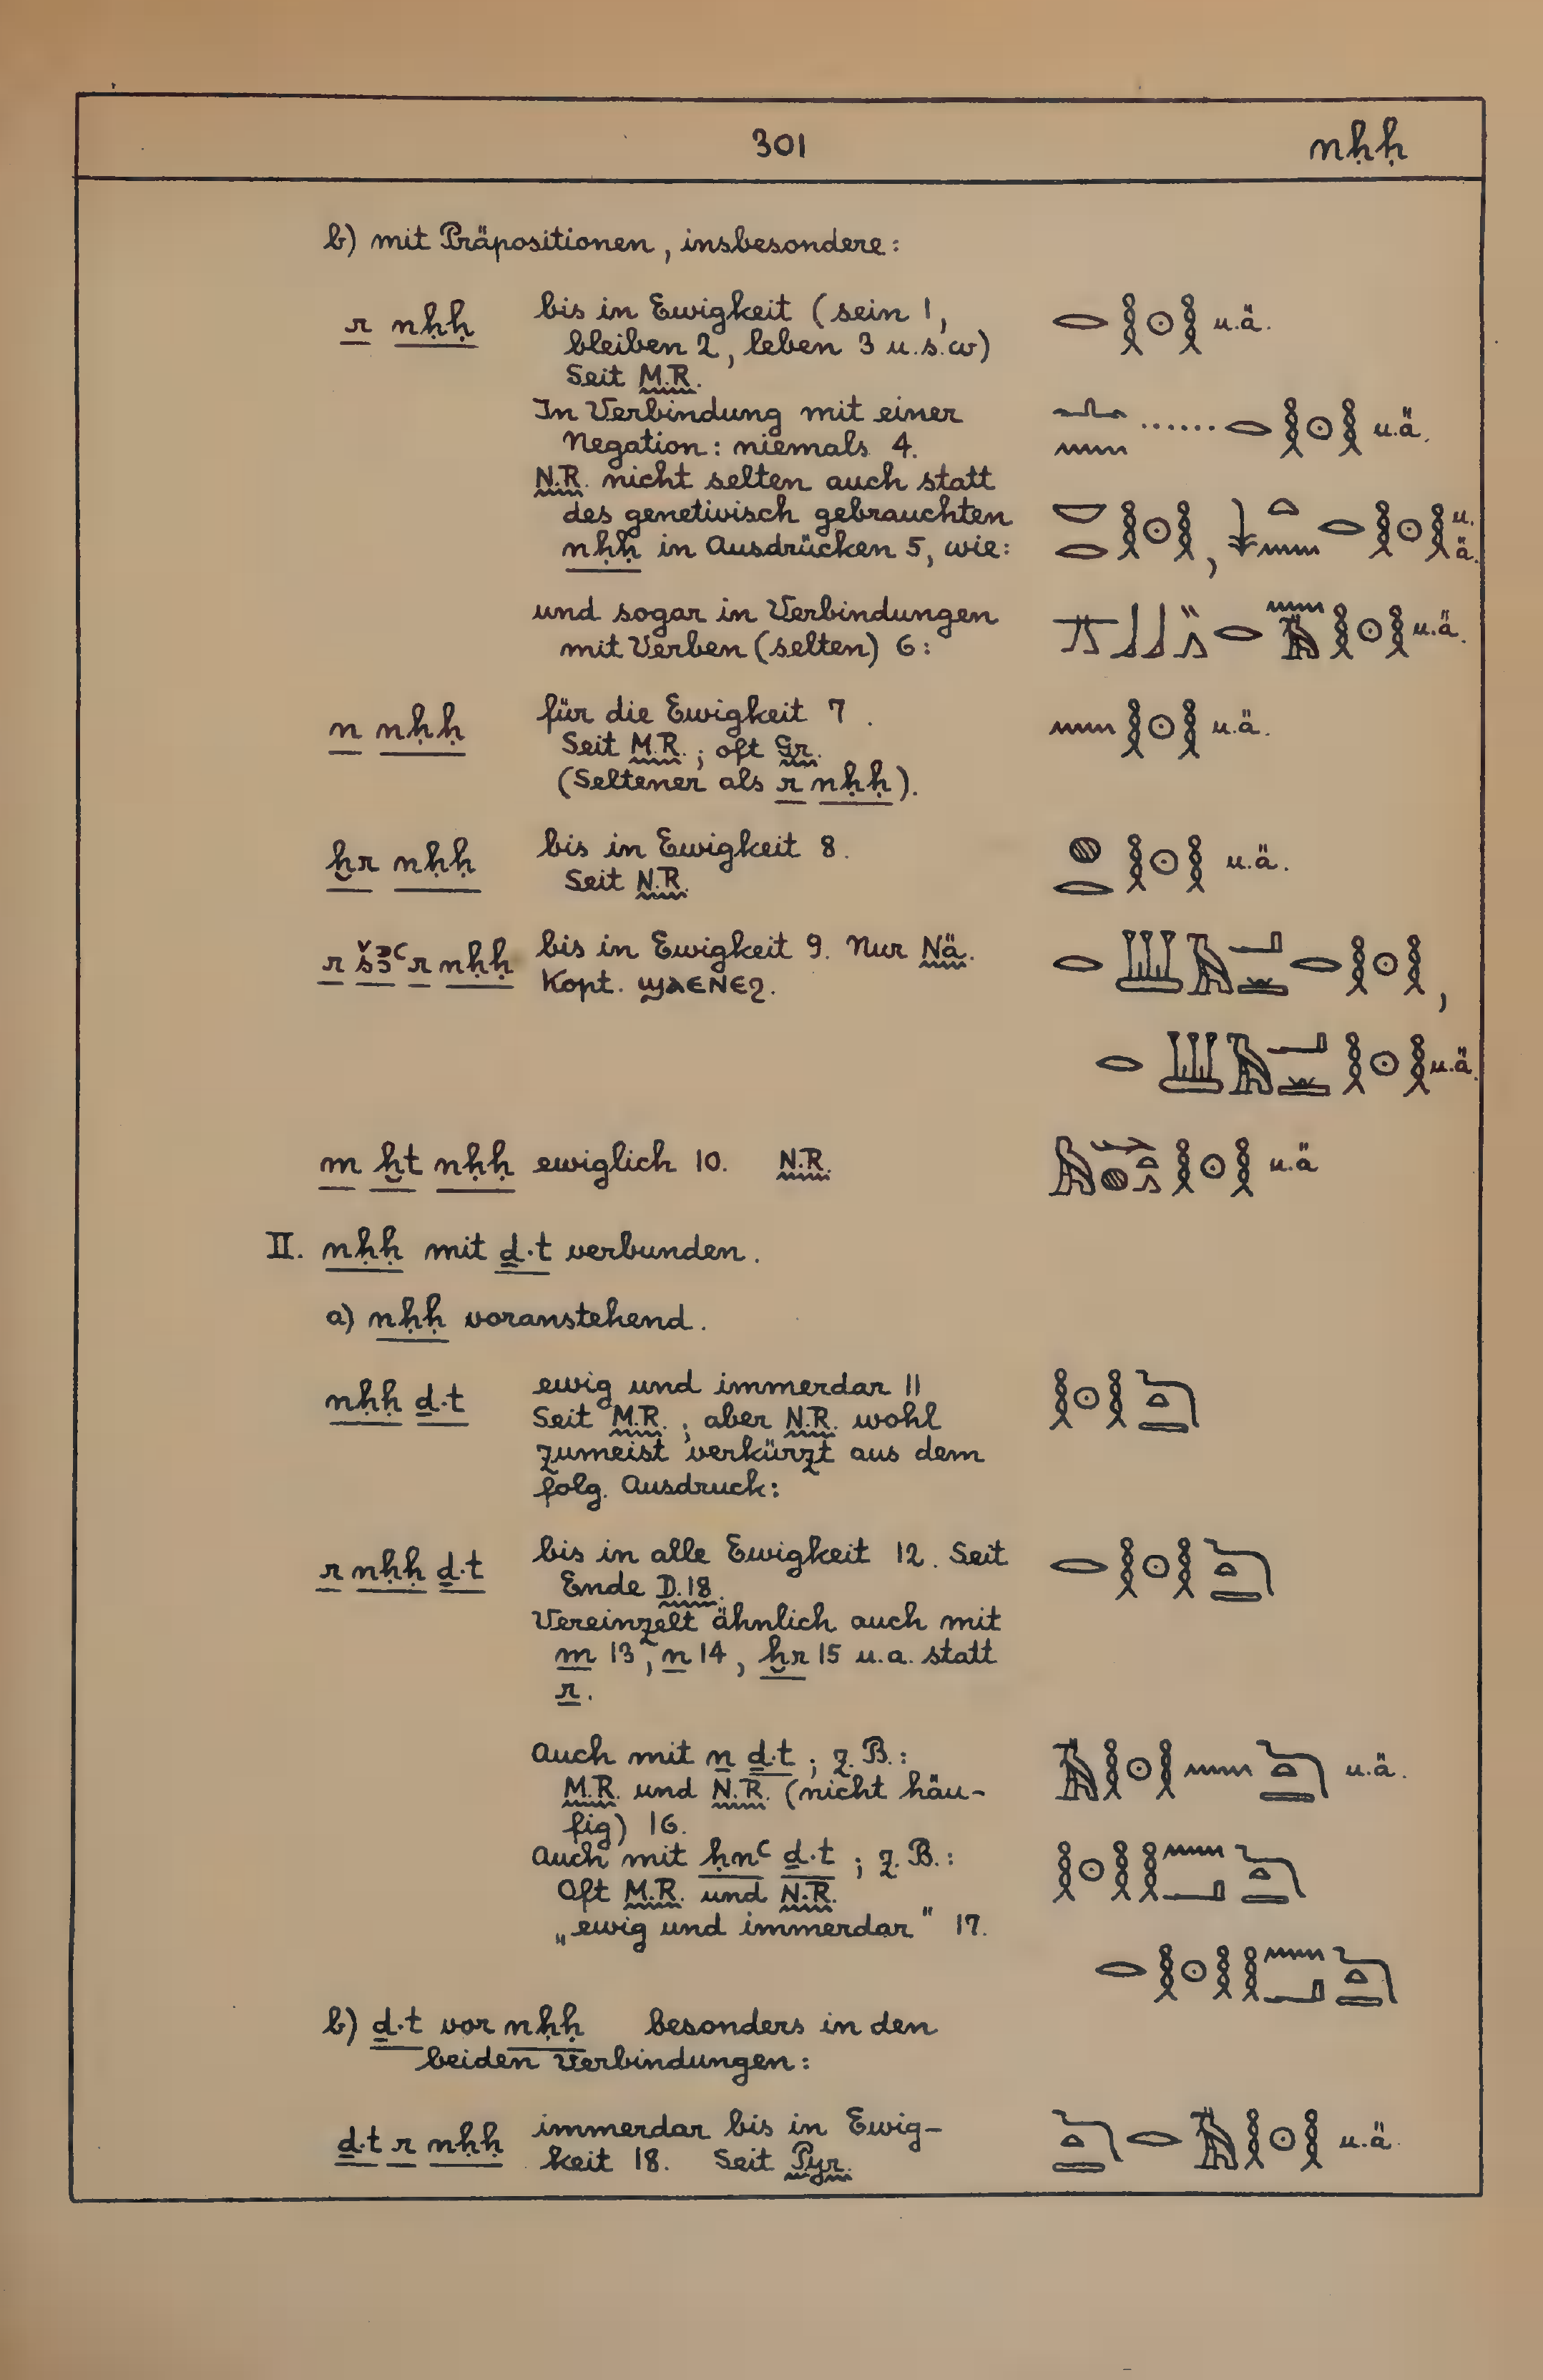 301 nḥḥ
b) mit Präpositionen, insbesondere:
r nḥḥ bis in Ewigkeit (sein 1, 𓂋𓎛𓇳𓎛 u.ä.
bleiben 2, leben 3 u.s.w)
Seit M.R.
In Verbindung mit einer 𓂜𓈖 ...... 𓂋𓎛𓇳𓎛 u.ä.
Negation: niemals 4.
N.R. nicht selten auch statt
des genetivisch gebrauchten 𓎟𓂋𓎛𓇳𓎛, 𓇓𓏏𓈖𓂋𓎛𓇳𓎛 u.
nḥḥ in Ausdrücken 5, wie: ä.
und sogar in Verbindungen
mit Verben (selten) 6: u.ä.
n nḥḥ für die Ewigkeit 7. 𓈖𓎛𓇳𓎛 u.ä.
Seit M.R.; oft Gr.
(Seltener als r nḥḥ).
ḫr nḥḥ bis in Ewigkeit 8. 𓐍𓂋𓎛𓇳𓎛 u.ä.
Seit N.R.
r šꜣꜥ r nḥḥ bis in Ewigkeit 9. Nur Nä. 𓂋𓆷𓄿𓂝𓈎𓂋𓎛𓇳𓎛,
Kopt. ϣⲁⲉⲛⲉϩ.
𓂋𓆷𓄿𓂝𓈎𓎛𓇳𓎛 u.ä.
m ḫt nḥḥ ewiglich 10. N.R. 𓅓𓆱𓐍𓏏𓂻𓎛𓇳𓎛 u.ä
II. nḥḥ mit ḏ.t verbunden.
a) nḥḥ voranstehend.
nḥḥ ḏ.t ewig und immerdar 11 𓎛𓇳𓎛𓆓𓏏𓇿
Seit M.R.; aber N.R. wohl
zumeist verkürzt aus dem
folg. Ausdruck:
r nḥḥ ḏ.t bis in alle Ewigkeit 12. Seit 𓂋𓎛𓇳𓎛𓆓𓏏𓇿
Ende D.18.
Vereinzelt ähnlich auch mit
m 13, n 14, ḫr 15 u.a. statt
r.
Auch mit n ḏ.t; z.B.: 𓅓𓎛𓇳𓎛𓈖𓆓𓏏𓇿 u.ä.
M.R. und N.R. (nicht häu-
fig) 16.
Auch mit ḥnꜥ ḏ.t; z.B.: 𓎛𓇳𓎛𓎛𓈖𓂝𓆓𓏏𓇿
Oft M.R. und N.R.
„ewig und immerdar" 17.
𓂋𓎛𓇳𓎛𓎛𓈖𓂝𓆓𓏏𓇿
b) ḏ.t vor nḥḥ besonders in den
beiden Verbindungen:
ḏ.t r nḥḥ immerdar bis in Ewig- 𓆓𓏏𓇿𓂋𓅓𓎛𓇳𓎛 u.ä.
keit 18. Seit Pyr.